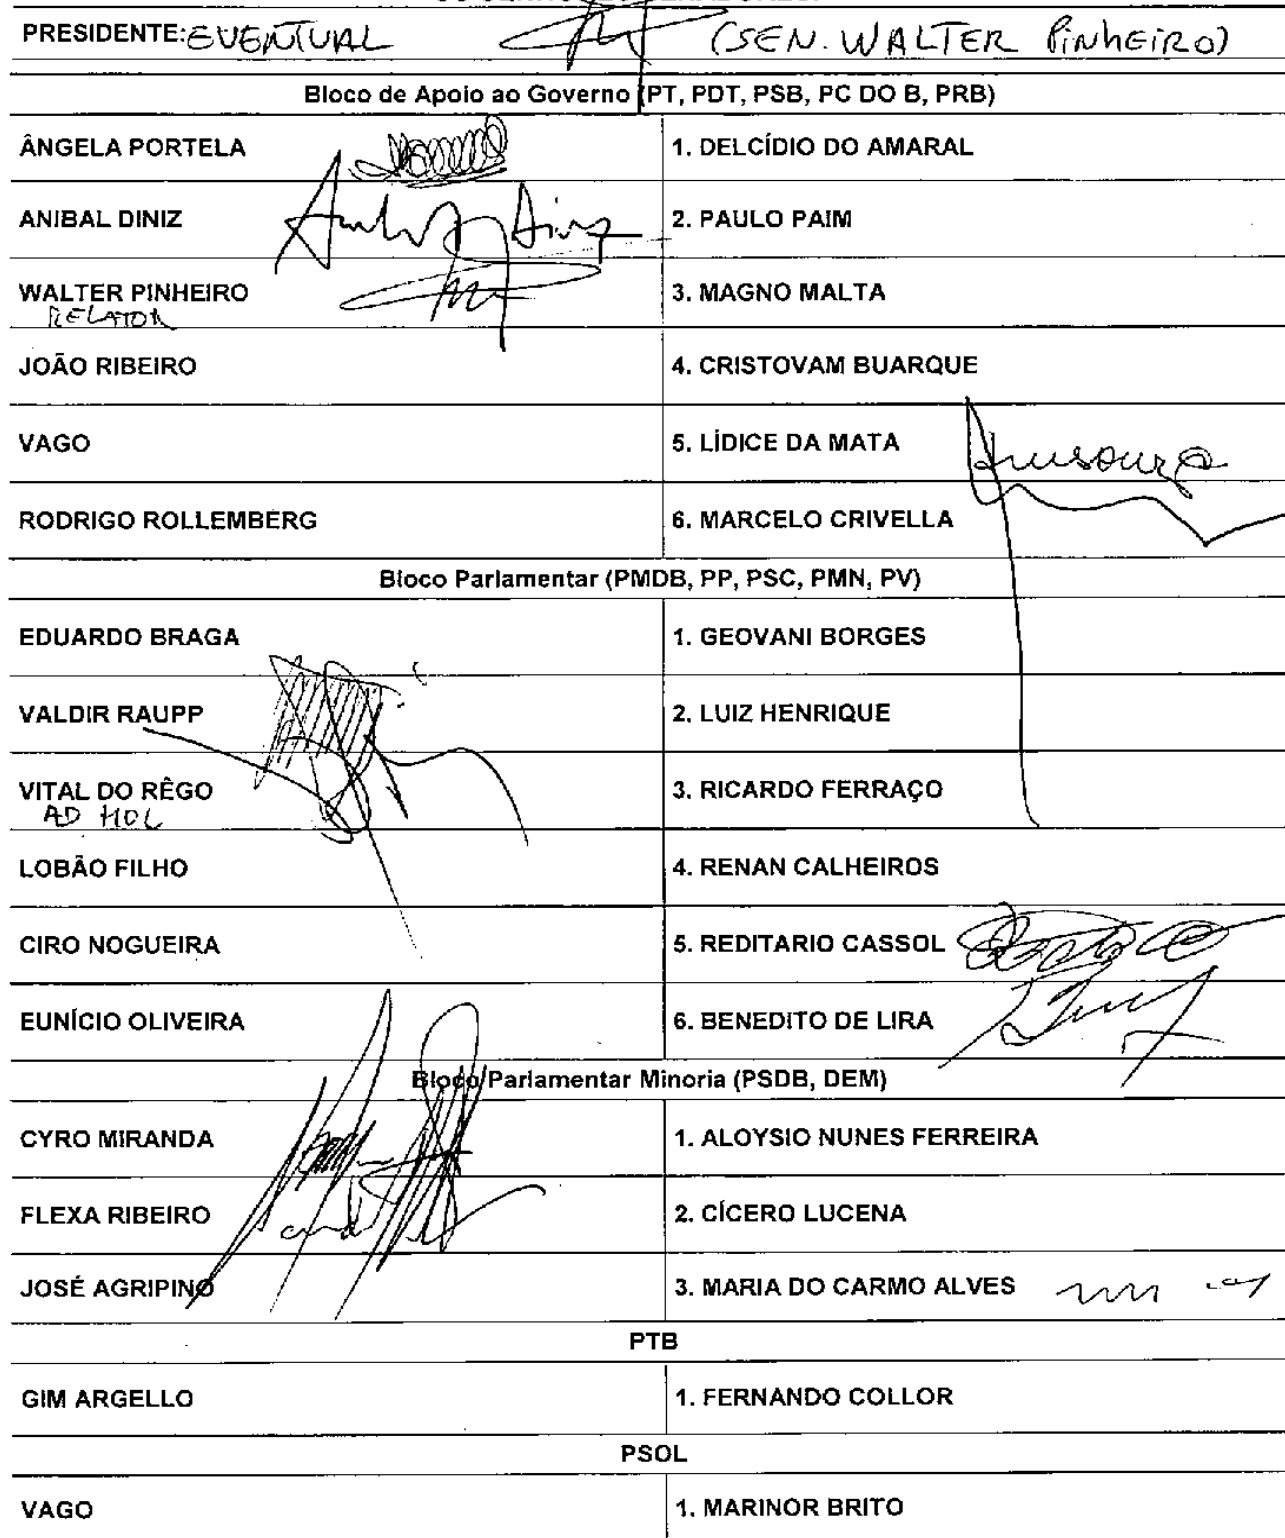 PRESIDENTE: EVENTUAL (SEN. WALTER PINHEIRO)
Bloco de Apoio ao Governo (PT, PDT, PSB, PC DO B, PRB)
ÂNGELA PORTELA 1. DELCÍDIO DO AMARAL
ANIBAL DINIZ 2. PAULO PAIM
WALTER PINHEIRO 3. MAGNO MALTA
RELATOR
JOÃO RIBEIRO 4. CRISTOVAM BUARQUE
VAGO 5. LÍDICE DA MATA
RODRIGO ROLLEMBERG 6. MARCELO CRIVELLA
Bloco Parlamentar (PMDB, PP, PSC, PMN, PV)
EDUARDO BRAGA 1. GEOVANI BORGES
VALDIR RAUPP 2. LUIZ HENRIQUE
VITAL DO RÊGO 3. RICARDO FERRAÇO
AD HOC
LOBÃO FILHO 4. RENAN CALHEIROS
CIRO NOGUEIRA 5. REDITARIO CASSOL
EUNÍCIO OLIVEIRA 6. BENEDITO DE LIRA
Bloco Parlamentar Minoria (PSDB, DEM)
CYRO MIRANDA 1. ALOYSIO NUNES FERREIRA
FLEXA RIBEIRO 2. CÍCERO LUCENA
JOSÉ AGRIPINO 3. MARIA DO CARMO ALVES
PTB
GIM ARGELLO 1. FERNANDO COLLOR
PSOL
VAGO 1. MARINOR BRITO